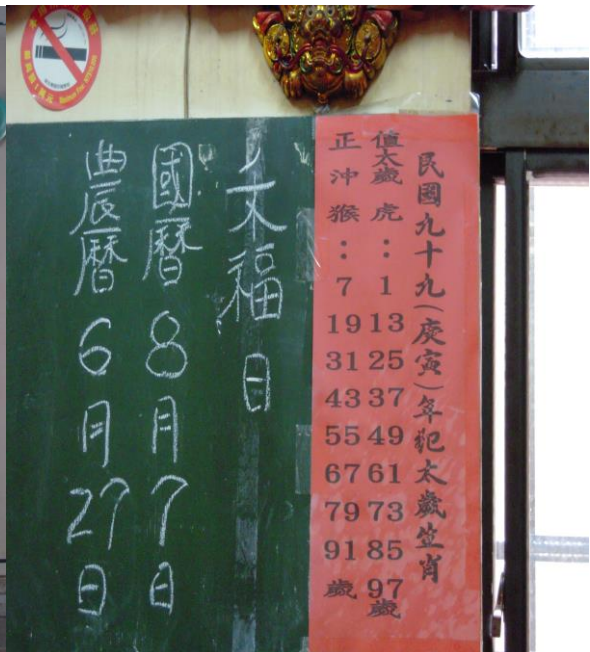 民國九十九(庚寅)年犯太歲生肖
值太歲虎：1 13 25 37 49 61 73 85 97歲
正沖猴：7 19 31 43 55 67 79 91歲
文福日
國曆8月7日
農曆6月27日